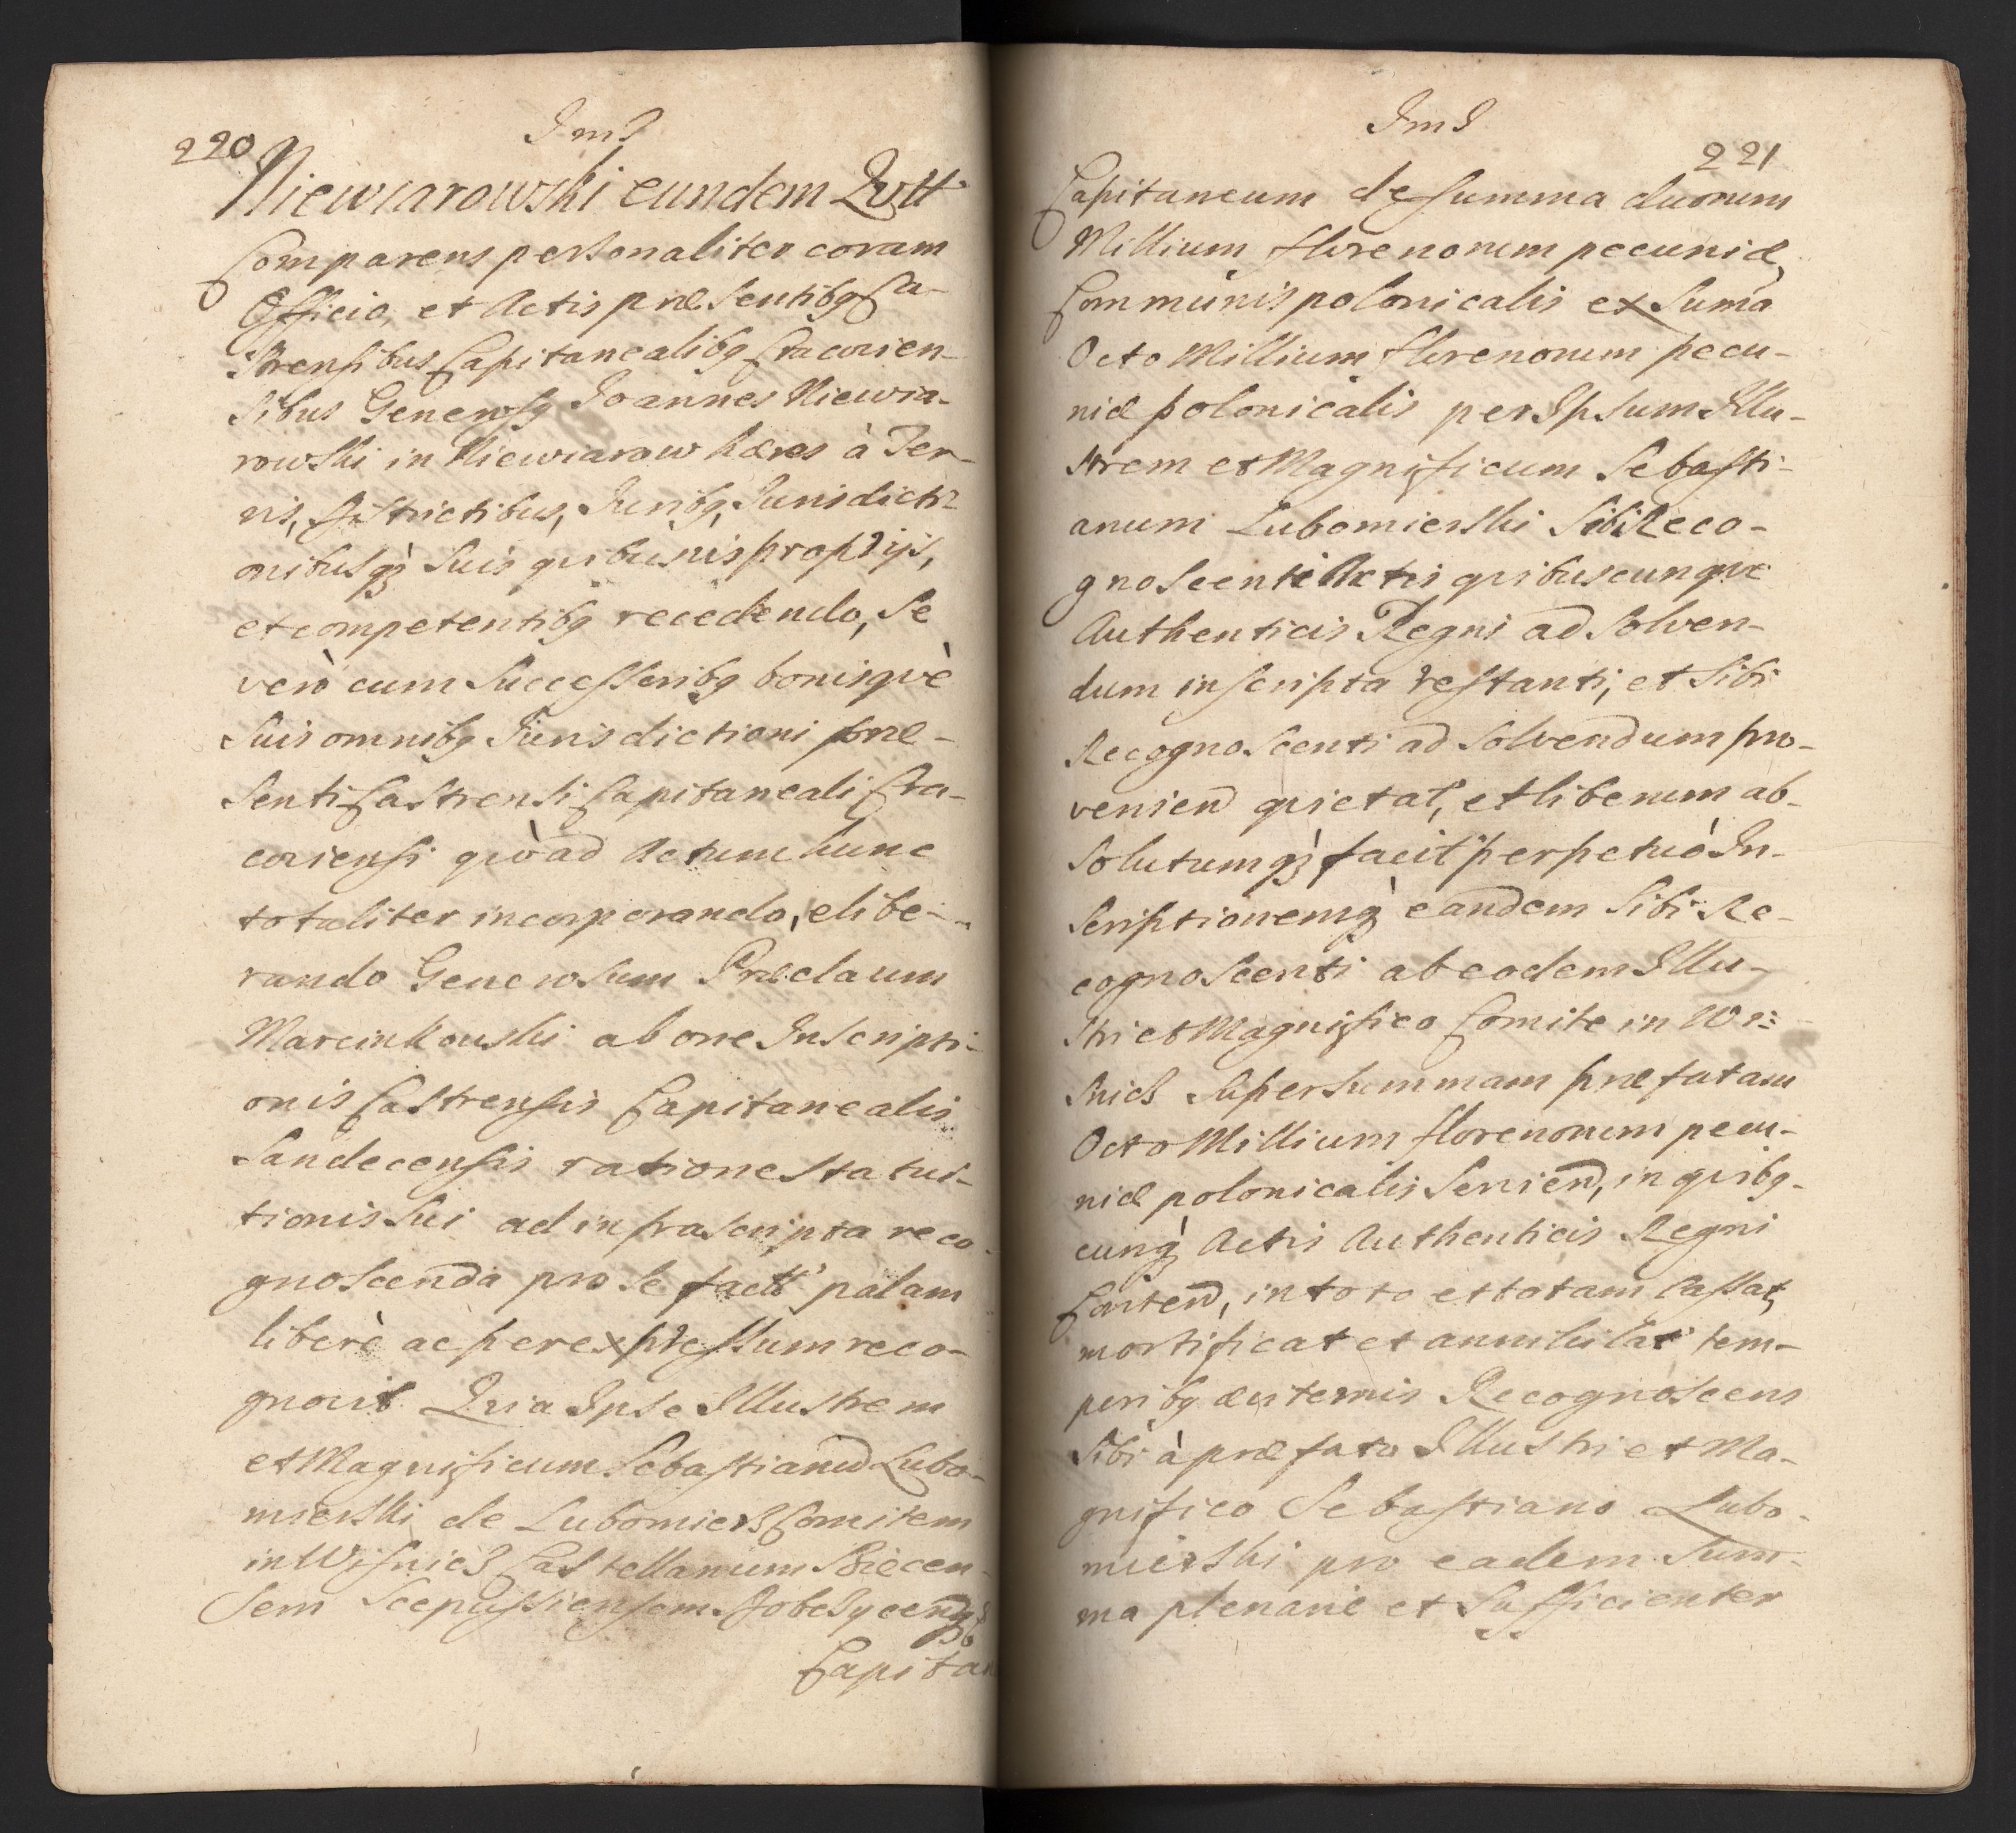 220
JmJ
Niewiarowski eundem Qvtt
Comparens personaliter coram
Officio, et Actis præsentibq Ca-
strensibus Capitanealibq Cracovien-
sibus Generosq Joannes Niewia-
rowski in Niewiarow hæres à Ter-
ris, Districtibus, Juribq, Jurisdicti-
onibusqz suis qvibusvis proprijs,
et competentibq recedendo, Se
verò cum Successoribq bonisqvè
Suis omnibq Jurisdictioni præ-
senti Castrensi Capitaneali Cra-
coviensi qvòad Actum hunc
totaliter incorporando, elibe-
rando Generosum Præclaum
Marcinkowski ab one Inscripti-
onis Castrensis Capitanealis
Sandecensis ratione statui-
tionis Sui ad infrascripta reco-
gnoscenda pro Se factt palam
liberè ac per expressum reco-
gnovit Qvia Ipse Illustrem
et Magnificum Sebastianu Lubo-
mierski de Lubomierz Comitem
in Wisnicz Castellanum Biecen-
Sem Scepussiensem Dobcsycensq
Capitan
JmJ
221
Capitaneum de Summa duorum
Millium florenorum pecuniæ
Communis polonicalis ex Suma
Octo Millium florenorum pecu-
niæ polonicalis per Ipsum Illu-
strem et Magnificum Sebasti-
anum Lubomierski Sibi Reco-
gnoscenti Actis qvibuscunqve
Authenticis Regni ad Solven-
dum inscripta restanti, et Sibi
Recognoscenti ad Solvendum pro-
venien qvietat, et liberum ab-
solutumqz facit perpetuò In-
scriptionemqz eandem Sibi Re-
cognoscenti ab eodem Illu-
stri et Magnifico Comite in Wi-
snicz Super Summam præfatam
Octo Millium florenorum pecu-
niæ polonicalis Servien, in qvibq-
cunqz Actis Authenticis Regni
Conten, in toto et totam Cassat,
mortificat et annihilat tem-
poribq æviternis Recognoscens
Sibi à præfato Illustri et Ma-
gnifico Sebastiano Lubo-
mierski pro eadem Sum-
ma plenarie et Sufficienter